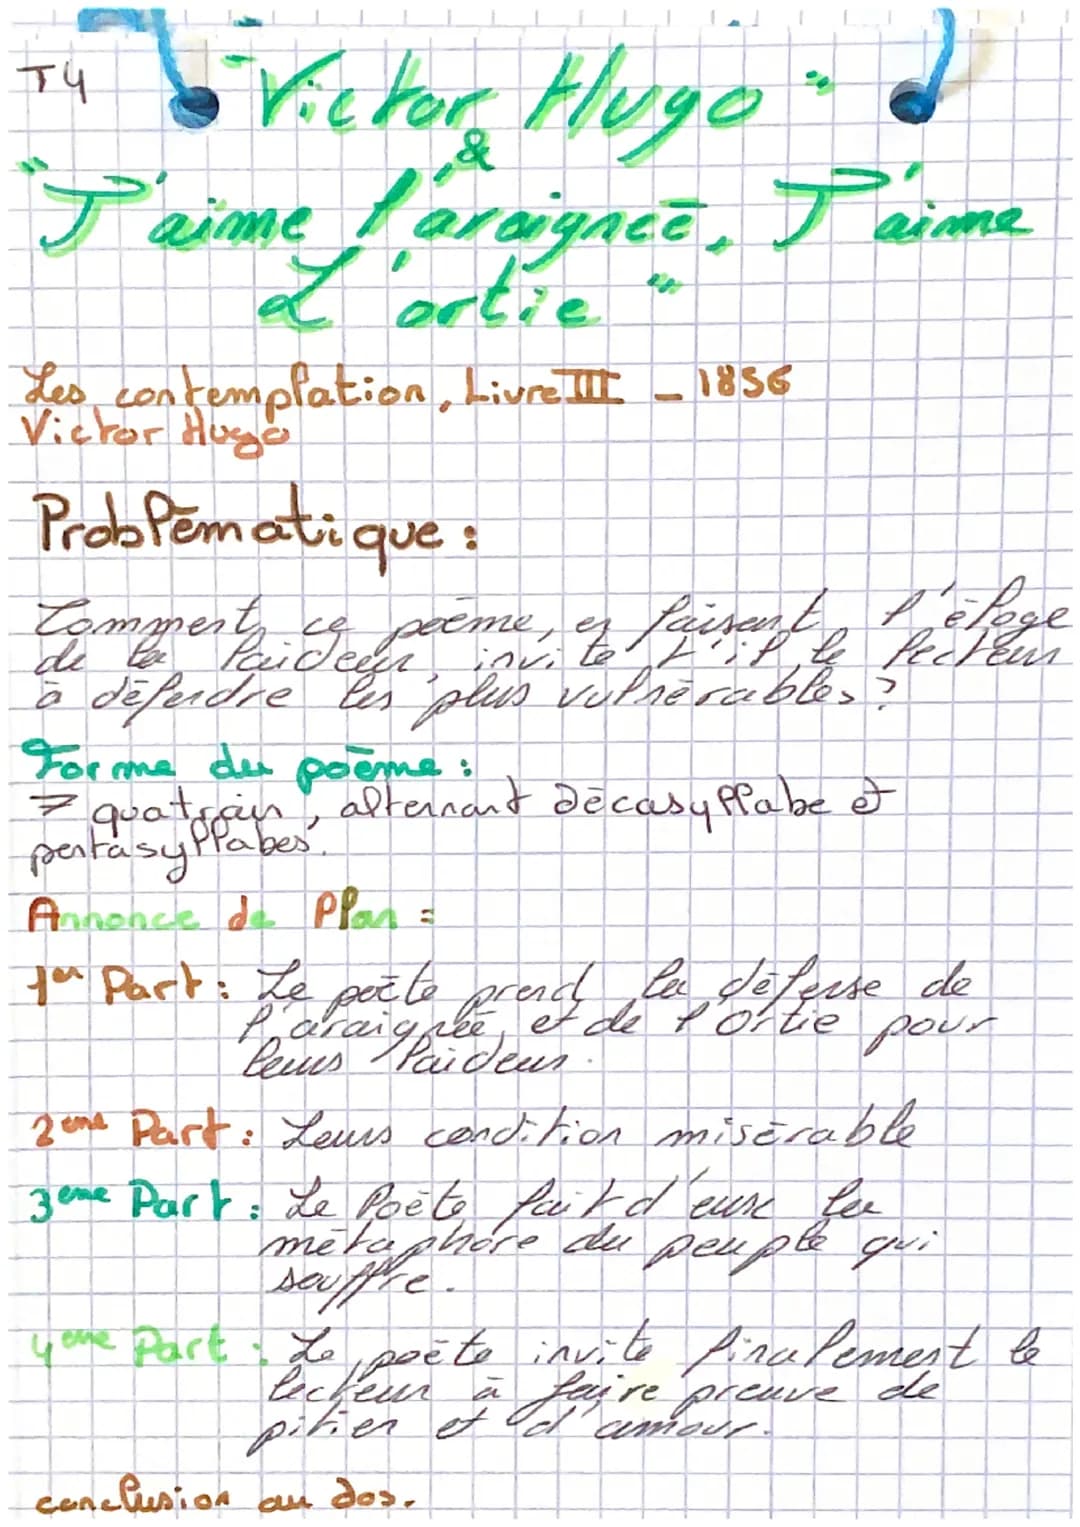 T4
"Victor Hugo"
&
"J'aime l'araigneé, J'aime
L'ortie"
Les contemplation, Livre III - 1856
Victor Hugo
Problématique :
Comment ce poème, en faisant l'éloge
de la laideur invite t'il le lecteur
à défendre les plus vulnérables ?
Forme du poème :
7 quatrain, alternant décasyllabe et
pentasyllabes.
Annonce de Plan :
1er Part : Le poète prend la défense de
l'araignée et de l'Ortie pour
leurs laideur.
2eme Part : Leurs condition misérable
3eme Part : Le Poète fait d'eux la
métaphore du peuple qui
souffre.
4eme Part : Le poète invite finalement le
lecteur à faire preuve de
pitier et d'amour.
conclusion au dos.